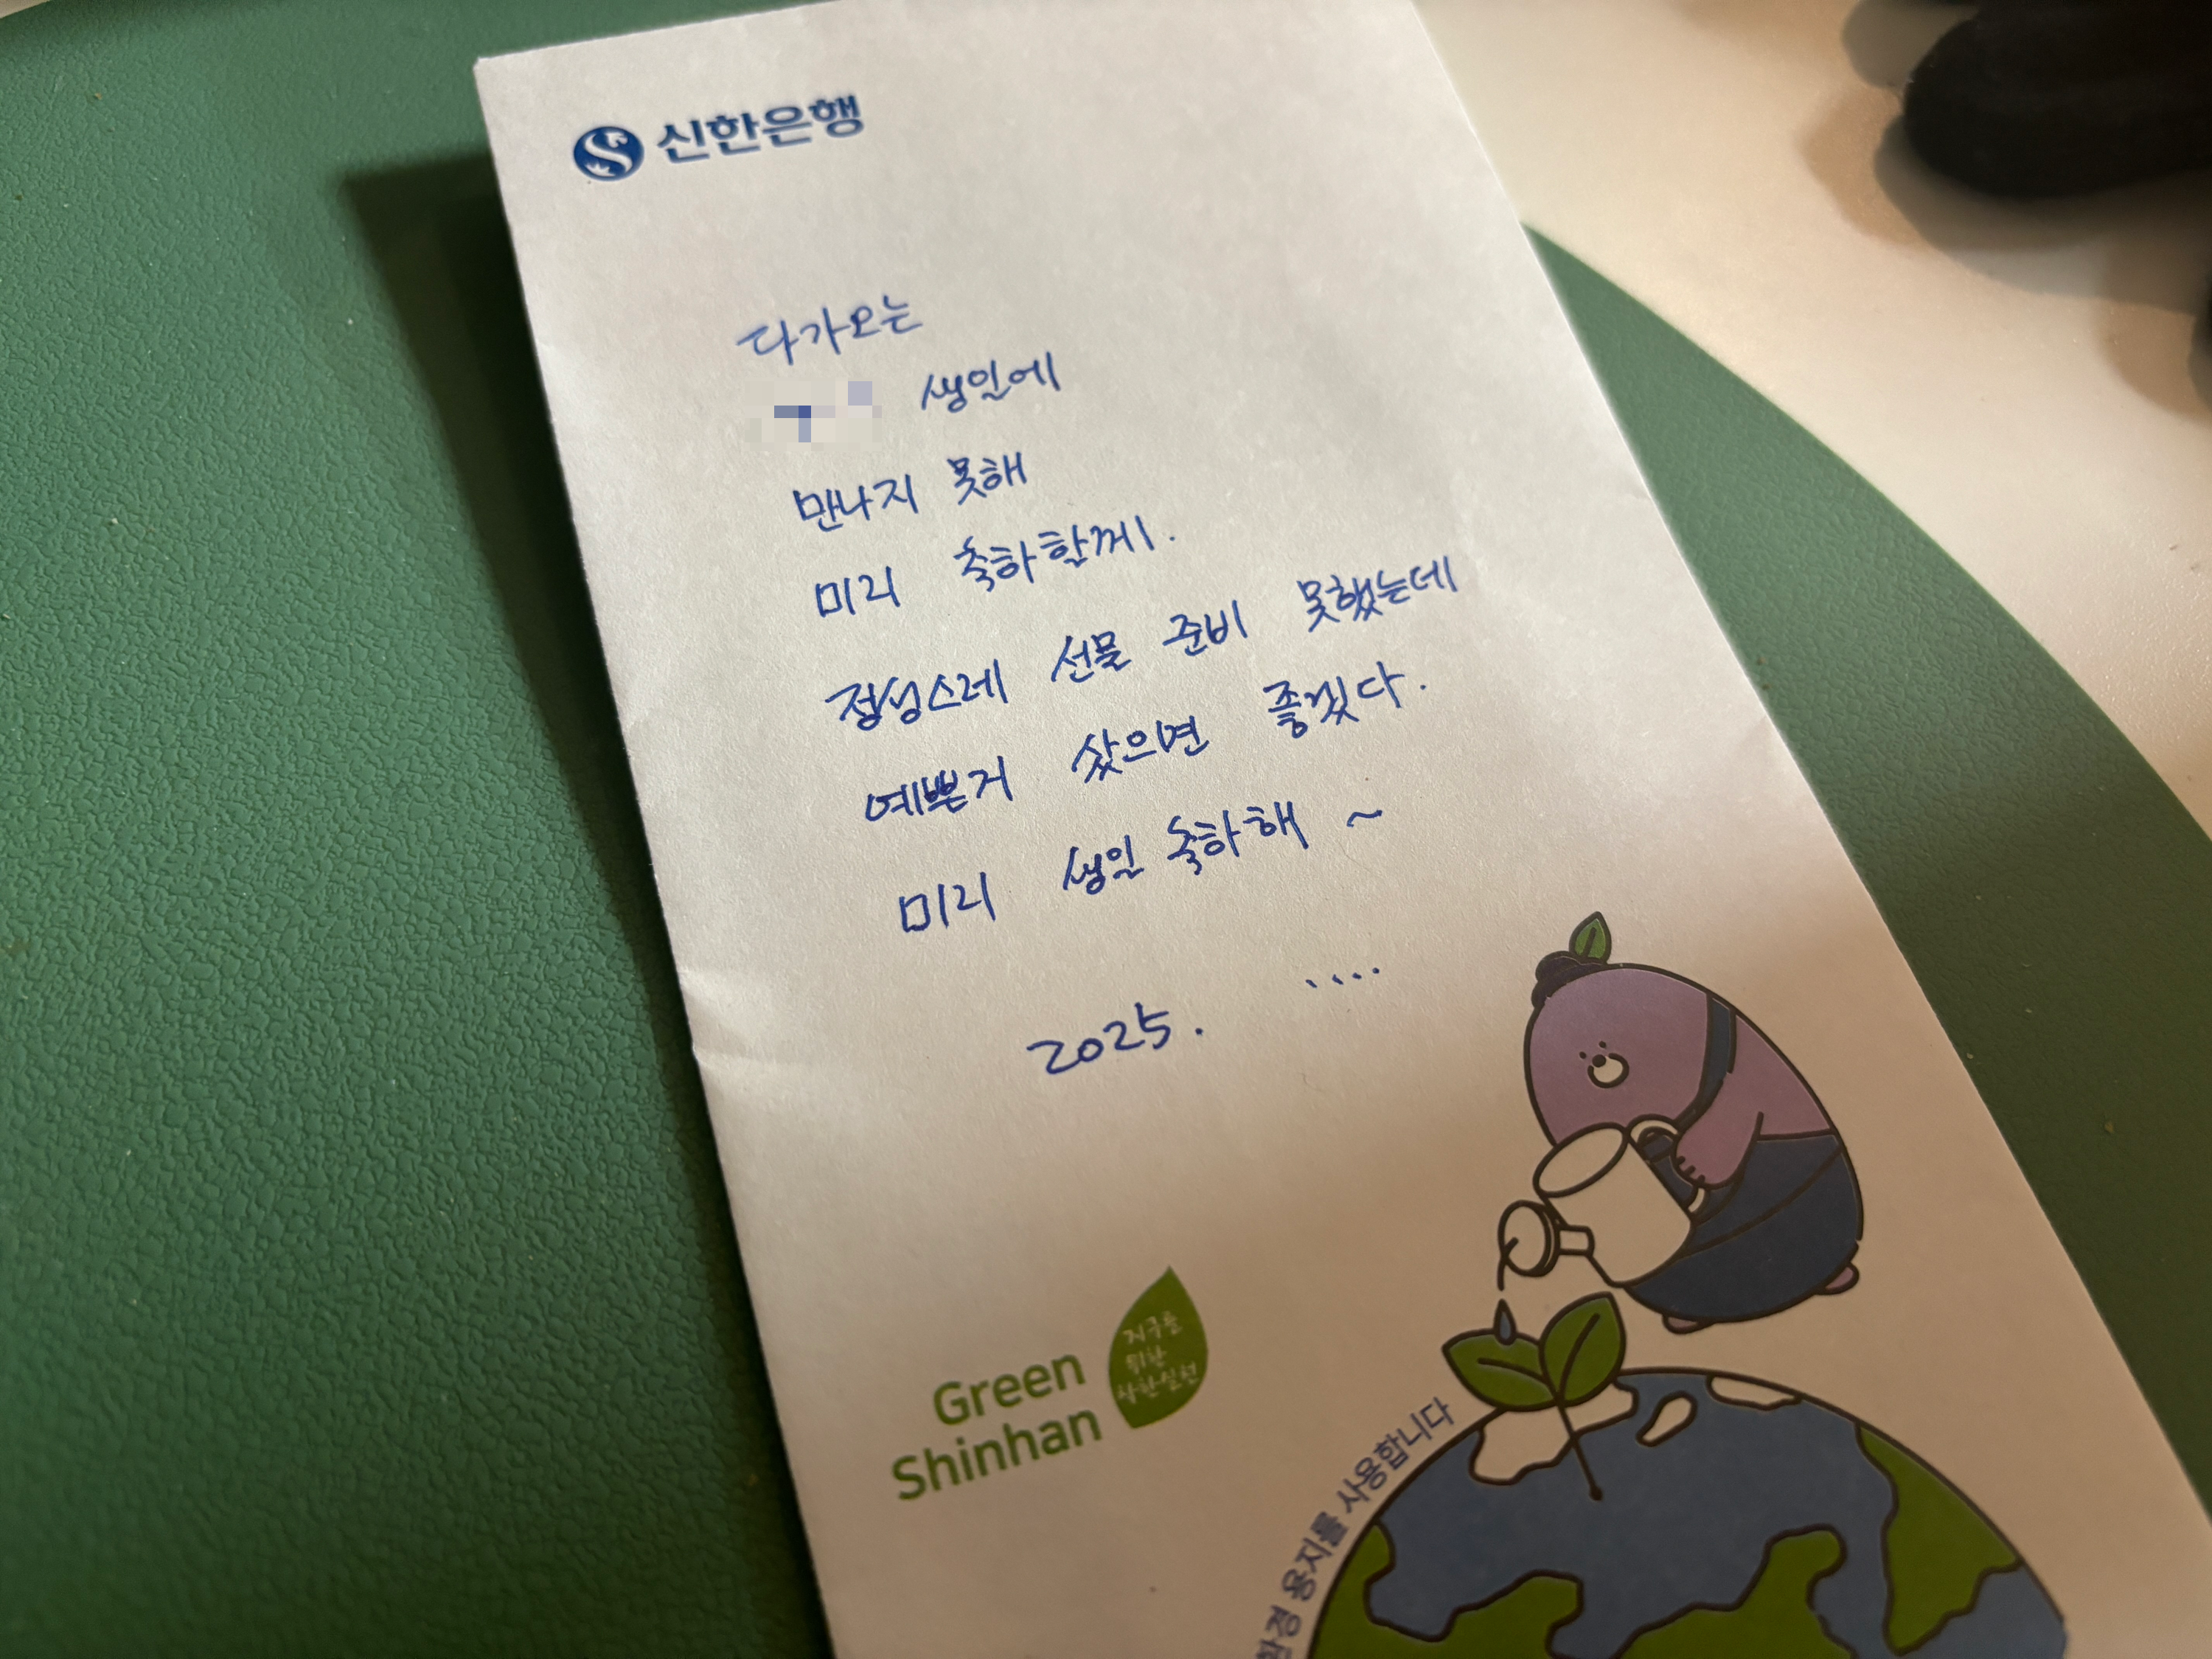 신한은행
다가오는
생일에
만나지 못해
미리 축하할께.
정성스레 선물 준비 못했는데
예쁜거 샀으면 좋겠다.
미리 생일 축하해 ~
....
2025.
Green
Shinhan
지구를
위한
신한실천
환경 용지를 사용합니다